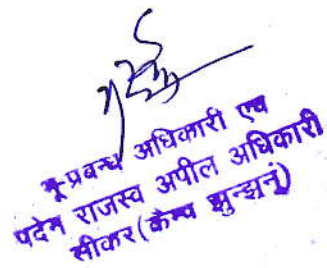 भू प्रबन्ध अधिकारी एवं
पदेन राजस्व अपील अधिकारी
सीकर (कैम्प झुन्झुनूं)